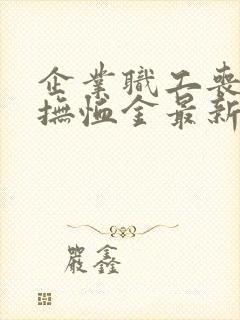 企業職工喪
撫恤金最新
嚴鑫